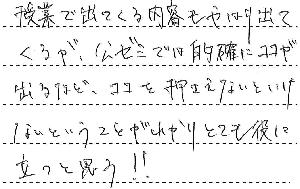 授業で出てくる内容もやはり出て
くるが、公ゼミでは的確にココが
出るなど、ココを押さえないといけ
ないということがわかりとても役に
立つと思う!!